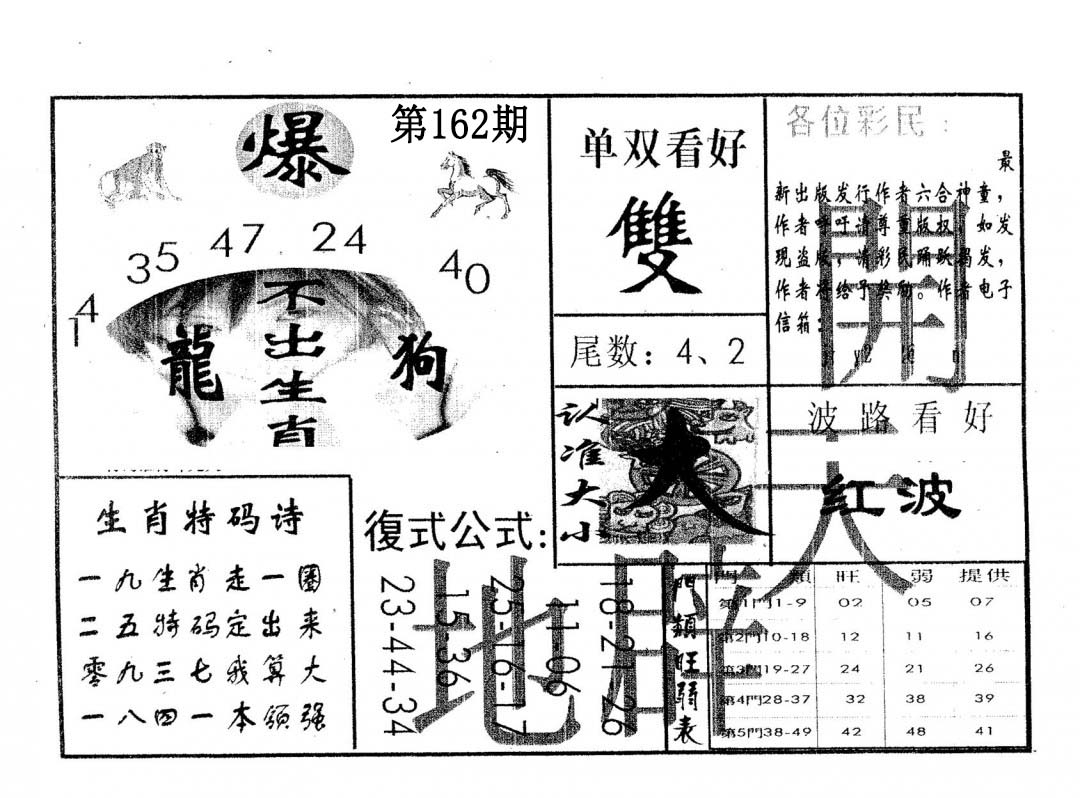 第162期
爆
35 47 24 40
14
龍
不出生肖
狗
单双看好
雙
尾数：4、2
各位彩民：
最
新出版发行作者六合神童，
作者呼吁请尊重版权，如发
现盗版，请彩民踊跃揭发，
作者将给予奖励。作者电子
信箱：
開
天
地
认准大小
大
波路看好
红波
生肖特码诗
一九生肖走一圈
二五特码定出来
零九三七我算大
一八四一本领强
復式公式:
23-44-34
15-36
25-16-17
11-06
18-21-26
門類旺弱表
門類 旺 弱 提供
第1門1-9 02 05 07
第2門10-18 12 11 16
第3門19-27 24 21 26
第4門28-37 32 38 39
第5門38-49 42 48 41